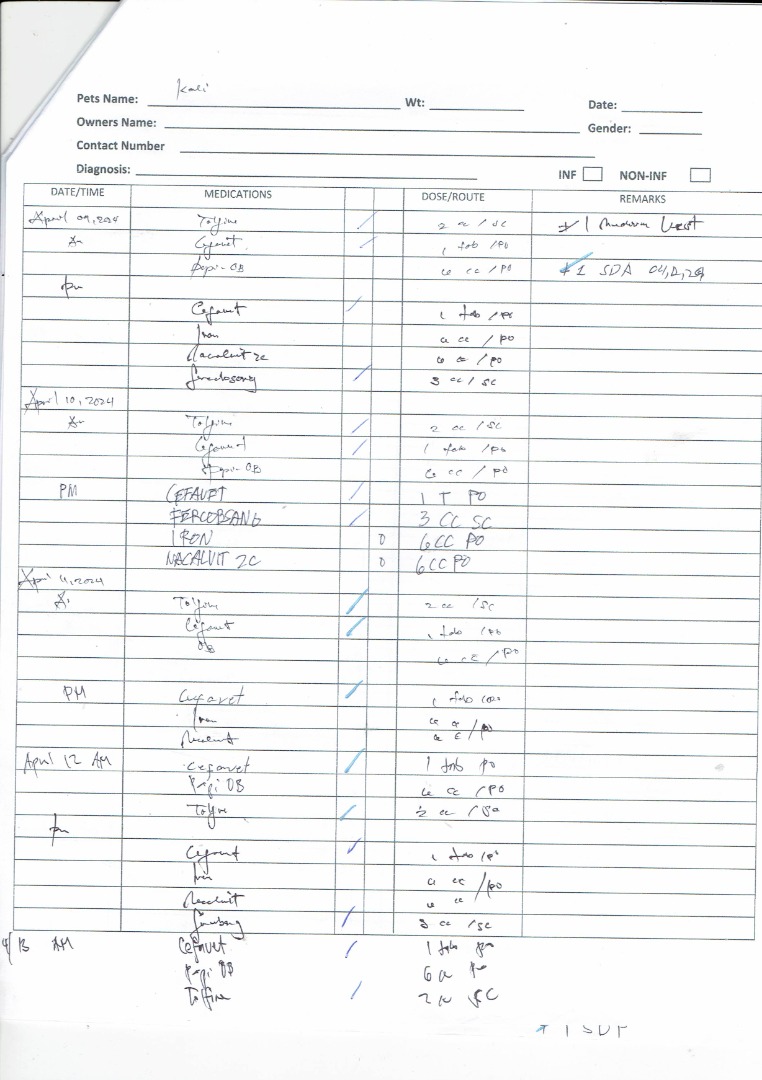 Kali
Pets Name: Wt: Date:
Owners Name: Gender:
Contact Number
Diagnosis: INF NON-INF
DATE/TIME MEDICATIONS DOSE/ROUTE REMARKS
April 09, 2024 Tolfine 2 cc / SC + 1
Cefavet 1 tab / PO
Pepi-OB 6 cc / PO + 1 SDA
pm
Cefavet 1 tab / PO
Iron 6 cc / PO
Nacalvit 2c 6 cc / PO
3 cc / SC
April 10, 2024
Tolfine 2 cc / SC
Cefavet 1 tab / PO
Pepi-OB 6 cc / PO
PM CEFAVET 1 T PO
FERCOBSANG 3 CC SC
IRON 0 6 CC PO
NACALVIT 2C 0 6 CC PO
April 11, 2024
Tolfine 2 cc / SC
Cefavet 1 tab / PO
OB 6 cc / PO
PM Cefavet 1 tab
Iron 6 cc / PO
6 cc
April 12 AM Cefavet 1 tab PO
Pepi OB 6 cc / PO
2 cc / SC
pm
Cefavet 1 tab / PO
Iron 6 cc / PO
Nacalvit 6 cc
3 cc / SC
4/13 AM Cefavet 1 tab PO
Pepi OB 6 PO
Tolfine 2 SC
+ 1